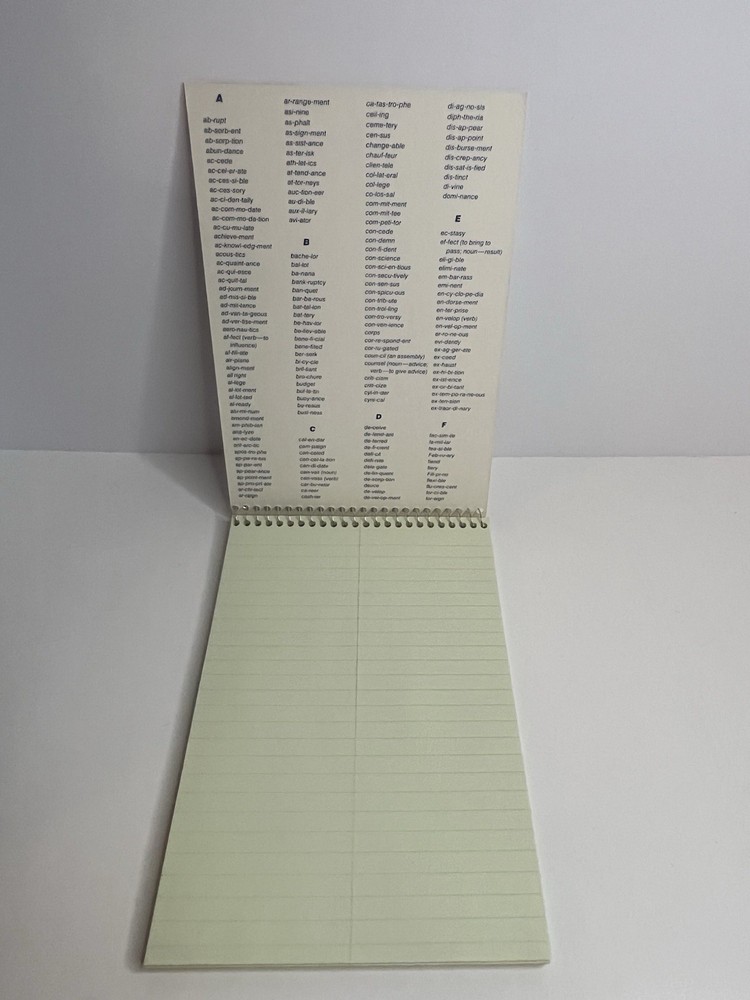 A
ab-rupt
ab-sorb-ent
ab-sorp-tion
abun-dance
ac-cede
ac-cel-er-ate
ac-ces-si-ble
ac-ces-sory
ac-ci-den-tally
ac-com-mo-date
ac-com-mo-da-tion
ac-cu-mu-late
achieve-ment
ac-knowl-edg-ment
acous-tics
ac-quaint-ance
ac-qui-esce
ac-quit-tal
ad-journ-ment
ad-mis-si-ble
ad-mit-tance
ad-van-ta-geous
ad-ver-tise-ment
aero-nau-tics
af-fect (verb—to
influence)
af-fil-iate
air-plane
align-ment
all right
al-lege
al-lot-ment
al-lot-ted
al-ready
alu-mi-num
amend-ment
an-a-lyze
ap-par-ent
ap-pear-ance
ap-point-ment
ar-chi-tect
ar-raign
ar-range-ment
asi-nine
as-phalt
as-sign-ment
as-sist-ance
as-ter-isk
ath-let-ics
at-tend-ance
at-tor-neys
auc-tion-eer
au-di-ble
aux-il-iary
avi-ator
B
bache-lor
bal-lot
ba-nana
bank-ruptcy
ban-quet
bar-ba-rous
bat-tal-ion
bat-tery
be-hav-ior
be-liev-able
bene-fi-cial
bene-fited
ber-serk
bi-cy-cle
bril-liant
bro-chure
budget
bul-le-tin
buoy-ance
bu-reaus
busi-ness
C
cal-en-dar
cam-paign
can-celed
can-cel-la-tion
can-di-date
can-vas (noun)
can-vass (verb)
ca-reer
cash-ier
ca-tas-tro-phe
ceil-ing
ceme-tery
cen-sus
change-able
chauf-feur
clien-tele
col-lat-eral
col-lege
co-los-sal
com-mit-ment
com-mit-tee
com-peti-tor
con-cede
con-demn
con-fi-dent
con-science
con-sci-en-tious
con-secu-tively
con-sen-sus
con-spicu-ous
con-trib-ute
con-trol-ling
con-tro-versy
con-ven-ience
corps
cor-re-spond-ent
cor-ru-gated
coun-cil (an assembly)
counsel (noun—advice;
verb—to give advice)
criti-cism
criti-cize
cyl-in-der
cyni-cal
D
de-ceive
de-fend-ant
de-ferred
de-fi-cient
deli-cate
de-lin-quent
de-scrip-tion
de-vel-op-ment
di-ag-no-sis
diph-the-ria
dis-ap-pear
dis-ap-point
dis-burse-ment
dis-crep-ancy
dis-sat-is-fied
dis-tinct
di-vine
domi-nance
E
ec-stasy
ef-fect (to bring to
pass; noun—result)
eli-gi-ble
elimi-nate
em-bar-rass
emi-nent
en-cy-clo-pe-dia
en-dorse-ment
en-ter-prise
en-velop (verb)
en-vel-op-ment
er-ro-ne-ous
evi-dently
ex-ag-ger-ate
ex-ceed
ex-haust
ex-hi-bi-tion
ex-ist-ence
ex-or-bi-tant
ex-tem-po-ra-ne-ous
ex-ten-sion
ex-traor-di-nary
F
fac-sim-ile
fa-mil-iar
fea-si-ble
Feb-ru-ary
fiend
fiery
Fili-pi-no
flexi-ble
fluo-res-cent
for-ci-ble
for-eign